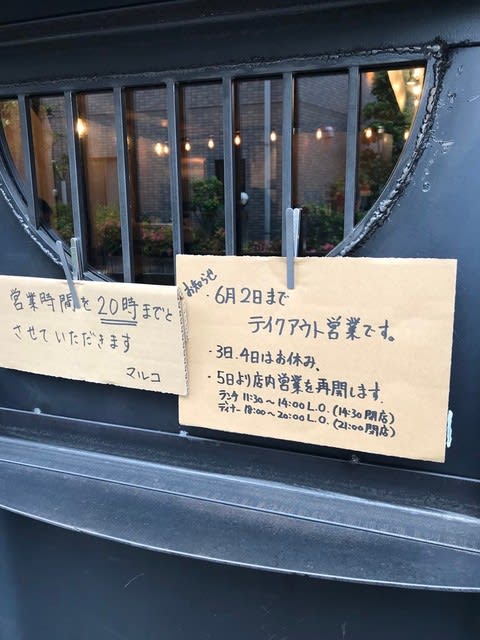 営業時間を20時までと
させていただきます
マルコ
お知らせ
・6月2日まで
テイクアウト営業です。
・3日.4日はお休み、
・5日より店内営業を再開します.
ランチ 11:30〜14:00 L.O. (14:30閉店)
ディナー 18:00〜20:00 L.O. (21:00閉店)